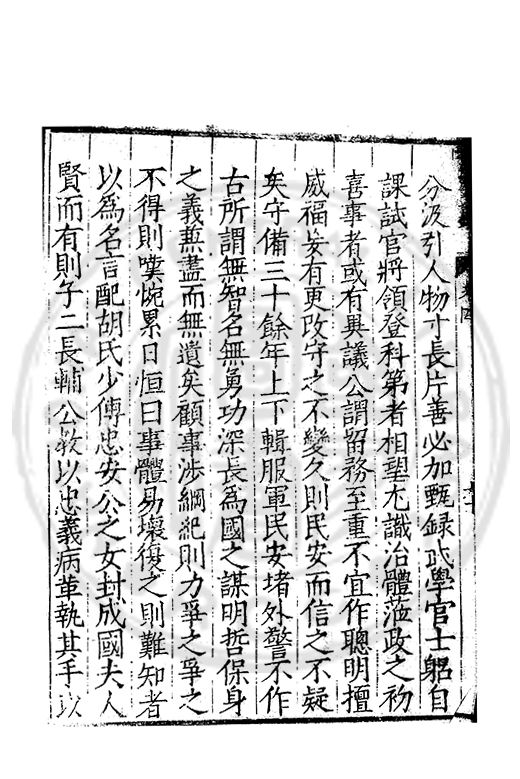 分汲引人物寸長片善必加甄錄武學官士躬自
課試官將領登科第者相望尤識治體蒞政之初
喜事者或有異議公謂留務至重不宜作聰明擅
威福妄有更改守之不變久則民安而信之不疑
矣守備三十餘年上下輯服軍民安堵外警不作
古所謂無智名無勇功深長為國之謀明哲保身
之義㷠盡而無遺矣顧事涉綱紀則力爭之爭之
不得則嘆惋累日恒曰事體易壞復之則難知者
以為名言配胡氏少傅忠安公之女封成國夫人
賢而有則子二長輔公教以忠義病革執其手以